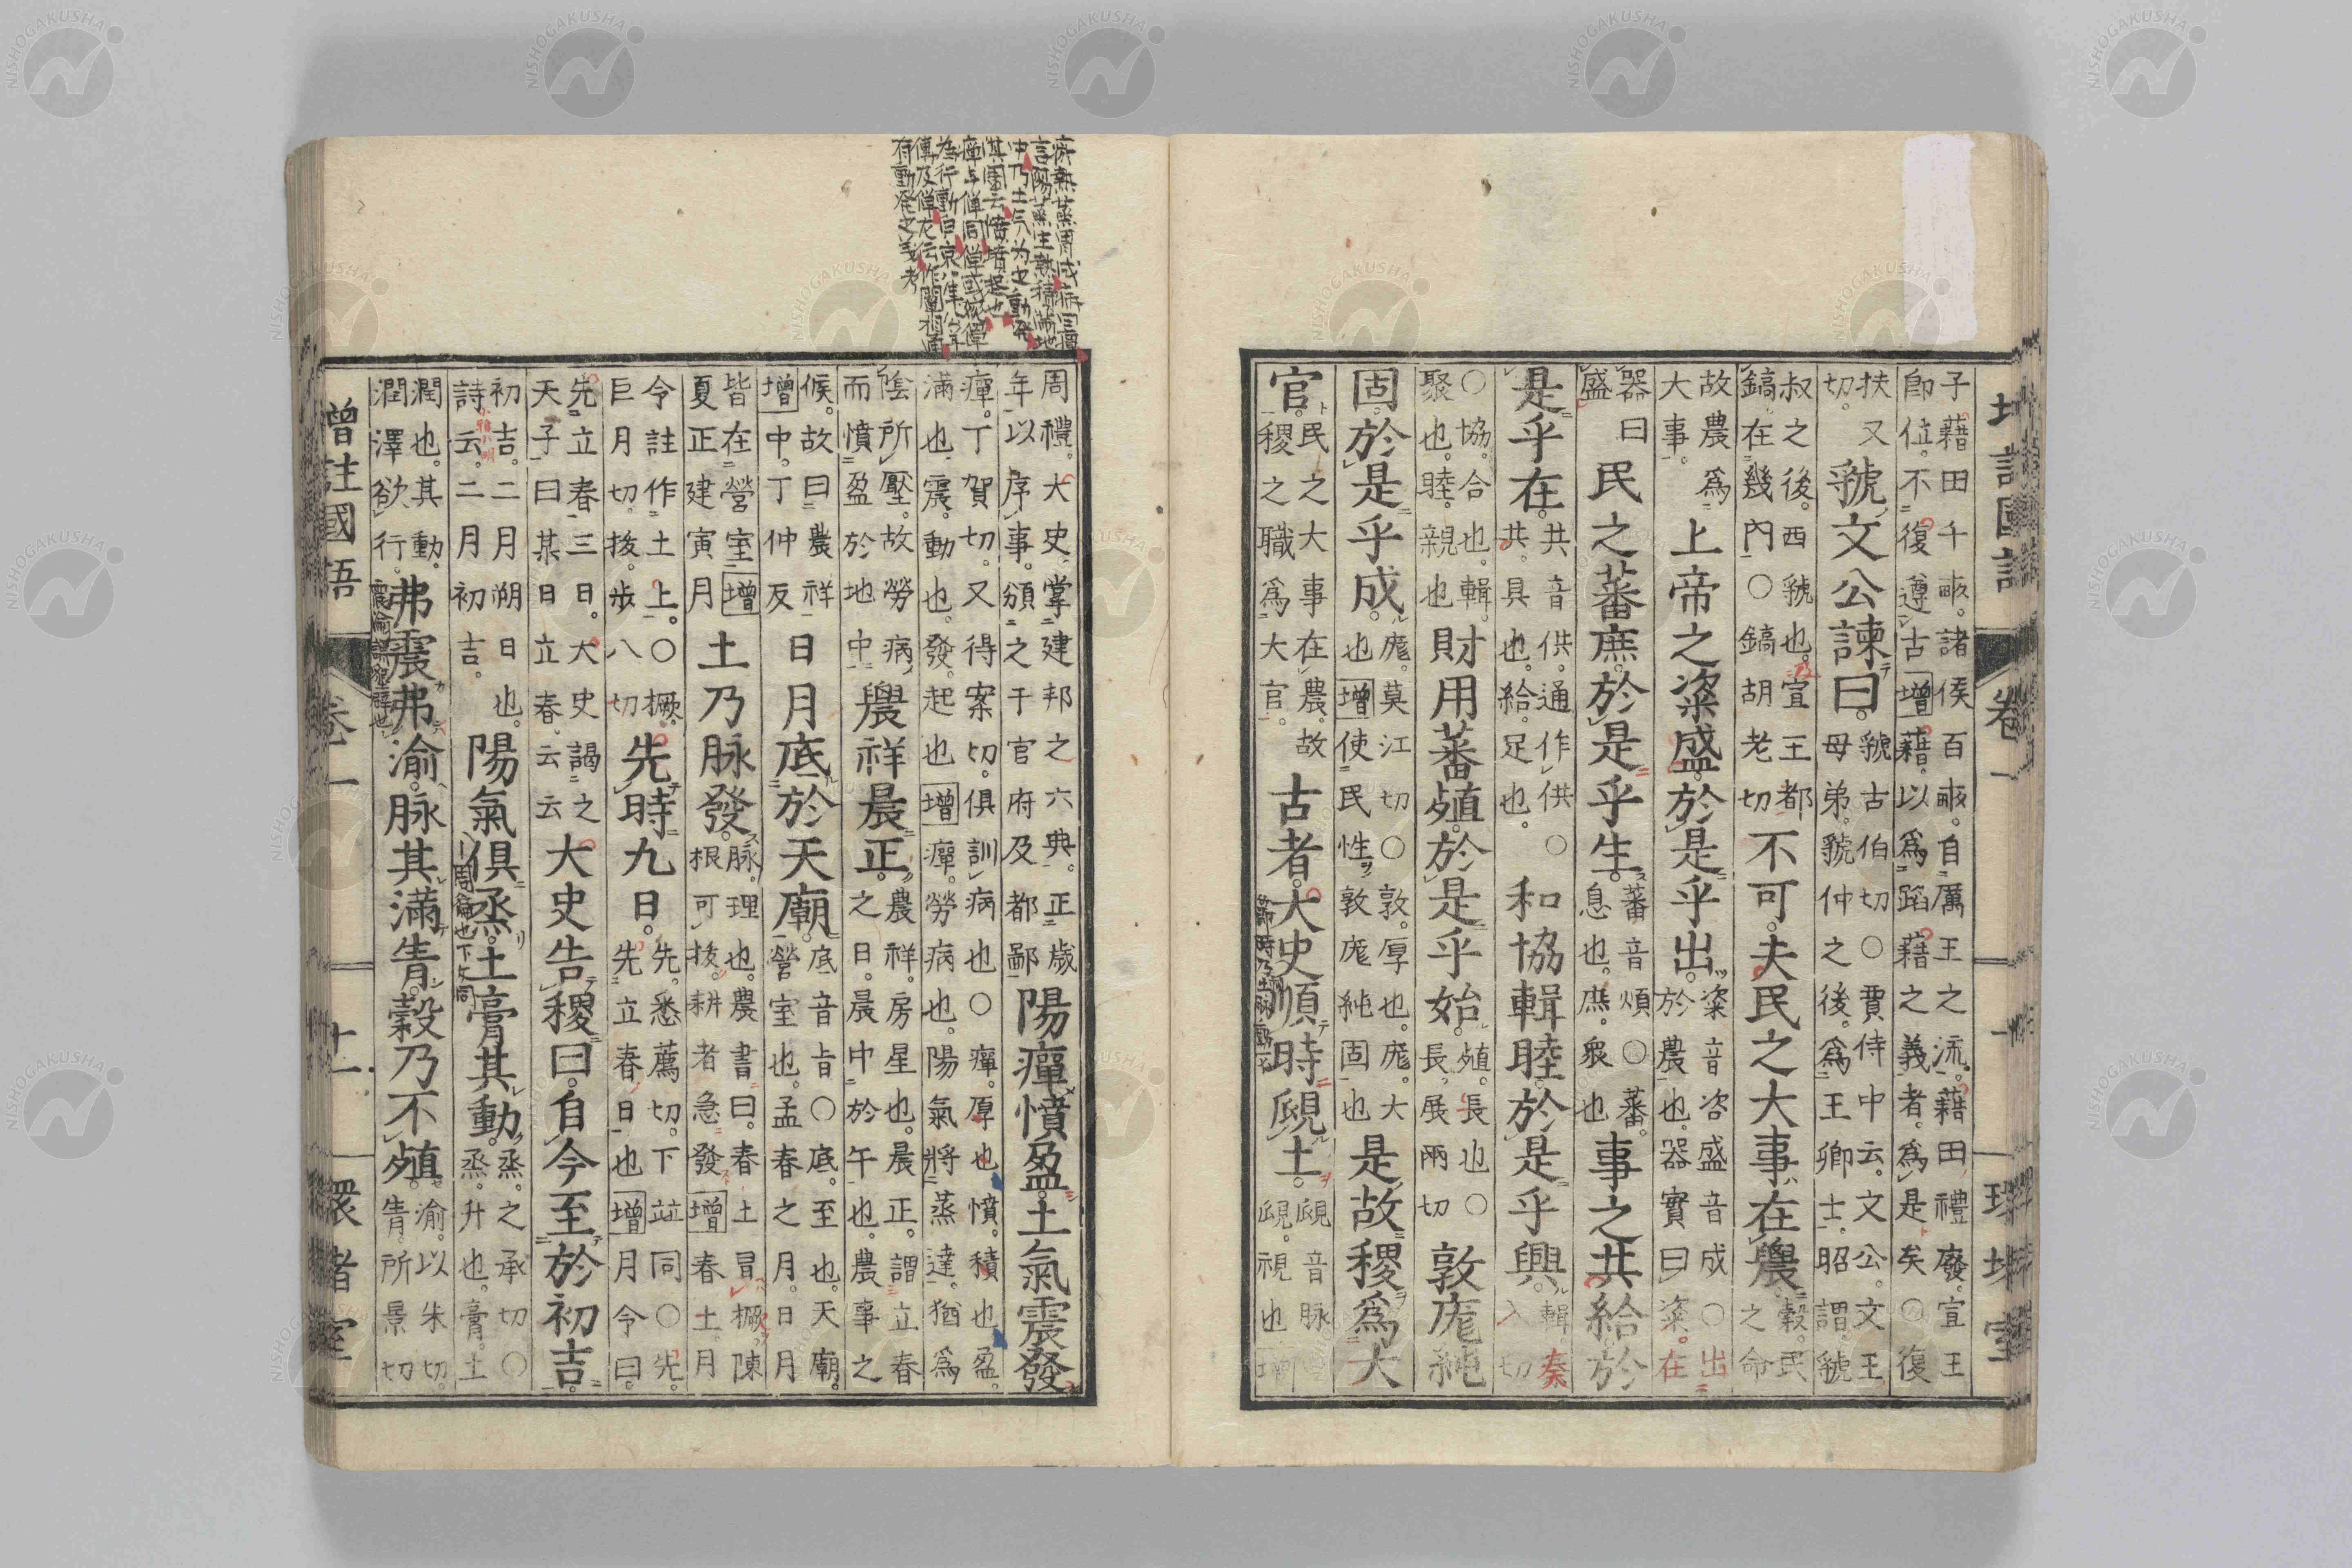 增註國語 卷一
子藉田千畝。諸侯百畝。自厲王之流。藉田禮廢。宣王
卽位。不復遵古增藉。以爲蹈藉之義者。爲是矣〇復
扶又
切。
虢文公諫曰。
虢古伯切〇賈侍中云。文公。文王
母弟。虢仲之後。爲王卿士。昭謂。虢
叔之後。西虢也。宣王都
鎬。在幾內〇鎬胡老切
不可。夫民之大事在農。
穀。民
之命
故農爲
大事。
上帝之粢盛。於是乎出。
粢音咨盛音成〇出
於農也。器實曰粢。在
器曰
盛
民之蕃庶。於是乎生。
蕃音煩〇蕃。
息也。庶。衆也
事之共給。於
是乎在。
共音供。通作供〇
共。具也。給。足也。
和協輯睦。於是乎興。
輯秦
入切
〇協。合也。輯。
聚也。睦。親也
財用蕃殖。於是乎始。
殖。長也〇
長。展兩切
敦庬純
固。於是乎成。
庬。莫江切〇敦。厚也。庬。大
也增使民性敦庬純固也
是故稷爲大
官。
民之大事在農。故
稷之職爲大官。
古者。大史順時䀏土。
䀏音脉
䀏。視也增
周禮。大史掌建邦之六典。正歲
年以序事。頒之于官府及都鄙
陽癉憤盈。土氣震發
癉。丁賀切。又得案切。俱訓病也〇癉。厚也。憤。積也。盈。
滿也。震。動也。發。起也增癉。勞病也。陽氣將蒸達。猶爲
陰所壓。故勞病
而憤盈於地中
農祥晨正。
農祥。房星也。晨正。謂立春
之日。晨中於午也。農事之
候。故曰農祥
增中。丁仲反
日月底於天廟。
底音旨〇底。至也。天廟。
營室也。孟春之月。日月
皆在營室增
夏正建寅月
土乃脉發。
脉。理也。農書曰。春土冒橛。陳
根可拔。耕者急發增春土。月
令註作土上。〇橛。
巨月切。拔。步八切
先時九日。
先。悉薦切。下竝同〇先。
先立春日也增月令曰。
先立春三日。大史謁之
天子曰某日立春。云云
大史告稷曰。自今至於初吉。
初吉。二月朔日也。
詩云。二月初吉。
陽氣俱烝。土膏其動。
烝。之承切〇
烝。升也。膏。土
潤也。其動。
潤澤欲行。
弗震弗渝。脉其滿眚。穀乃不殖。
渝。以朱切。
眚。所景切
增註國語 卷一 十一 環堵室